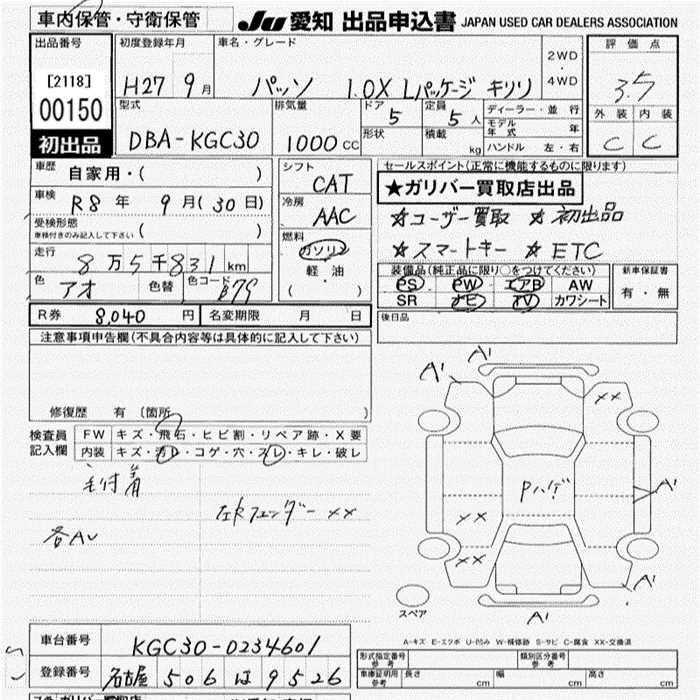 車内保管・守衛保管
JU 愛知 出品申込書 JAPAN USED CAR DEALERS ASSOCIATION
出品番号 初度登録年月 車名・グレード 2WD・4WD 評価点
[2118] H27 9月 パッソ 1.0X Lパッケージ キリリ 3.5
00150 型式 排気量 ドア 5 定員 5人 ディーラー・並行 外装 内装
DBA-KGC30 1000cc 形状 積載 kg モデル年式 年 C C
初出品 ハンドル 左・右
車歴 自家用・( ) シフト CAT セールスポイント(正常に機能するものに限ります)
車検 R8年 9月(30日) 冷房 AAC ★ガリバー買取店出品
受検形態 ( ) ☆ユーザー買取 ☆初出品
車検付きのみ記入して下さい
走行 8万5千831km 燃料 ガソリン ☆スマートキー ☆ETC
色 アオ 色替 色コード B79 軽・油 ( ・ )
装備品(純正品に限り○をつけてください) 新車保証書
PS PW エアB AW 有・無
SR ナビ TV カワシート
R券 8,040円 名変期限 月 日 後日品
注意事項申告欄(不具合内容等は具体的に記入して下さい)
修復歴 有 (箇所 )
検査員記入欄 FW キズ・飛石・ヒビ割・リペア跡・X要
内装 キズ・汚レ・コゲ・穴・スレ・キレ・破レ
毛付着
左Rフェンダー ××
各AU
A' A' ××
A'
Pハゲ
××
××
A'
A'
スペア
A-キズ E-エクボ U-凹み W-補修跡 S-サビ C-腐食 XX-交換済
車台番号 KGC30-0234601
登録番号 名古屋 506 は 9526
形式指定番号 参考 類別区分番号 参考
車庫証明用 参考 長さ cm 幅 cm 高さ cm